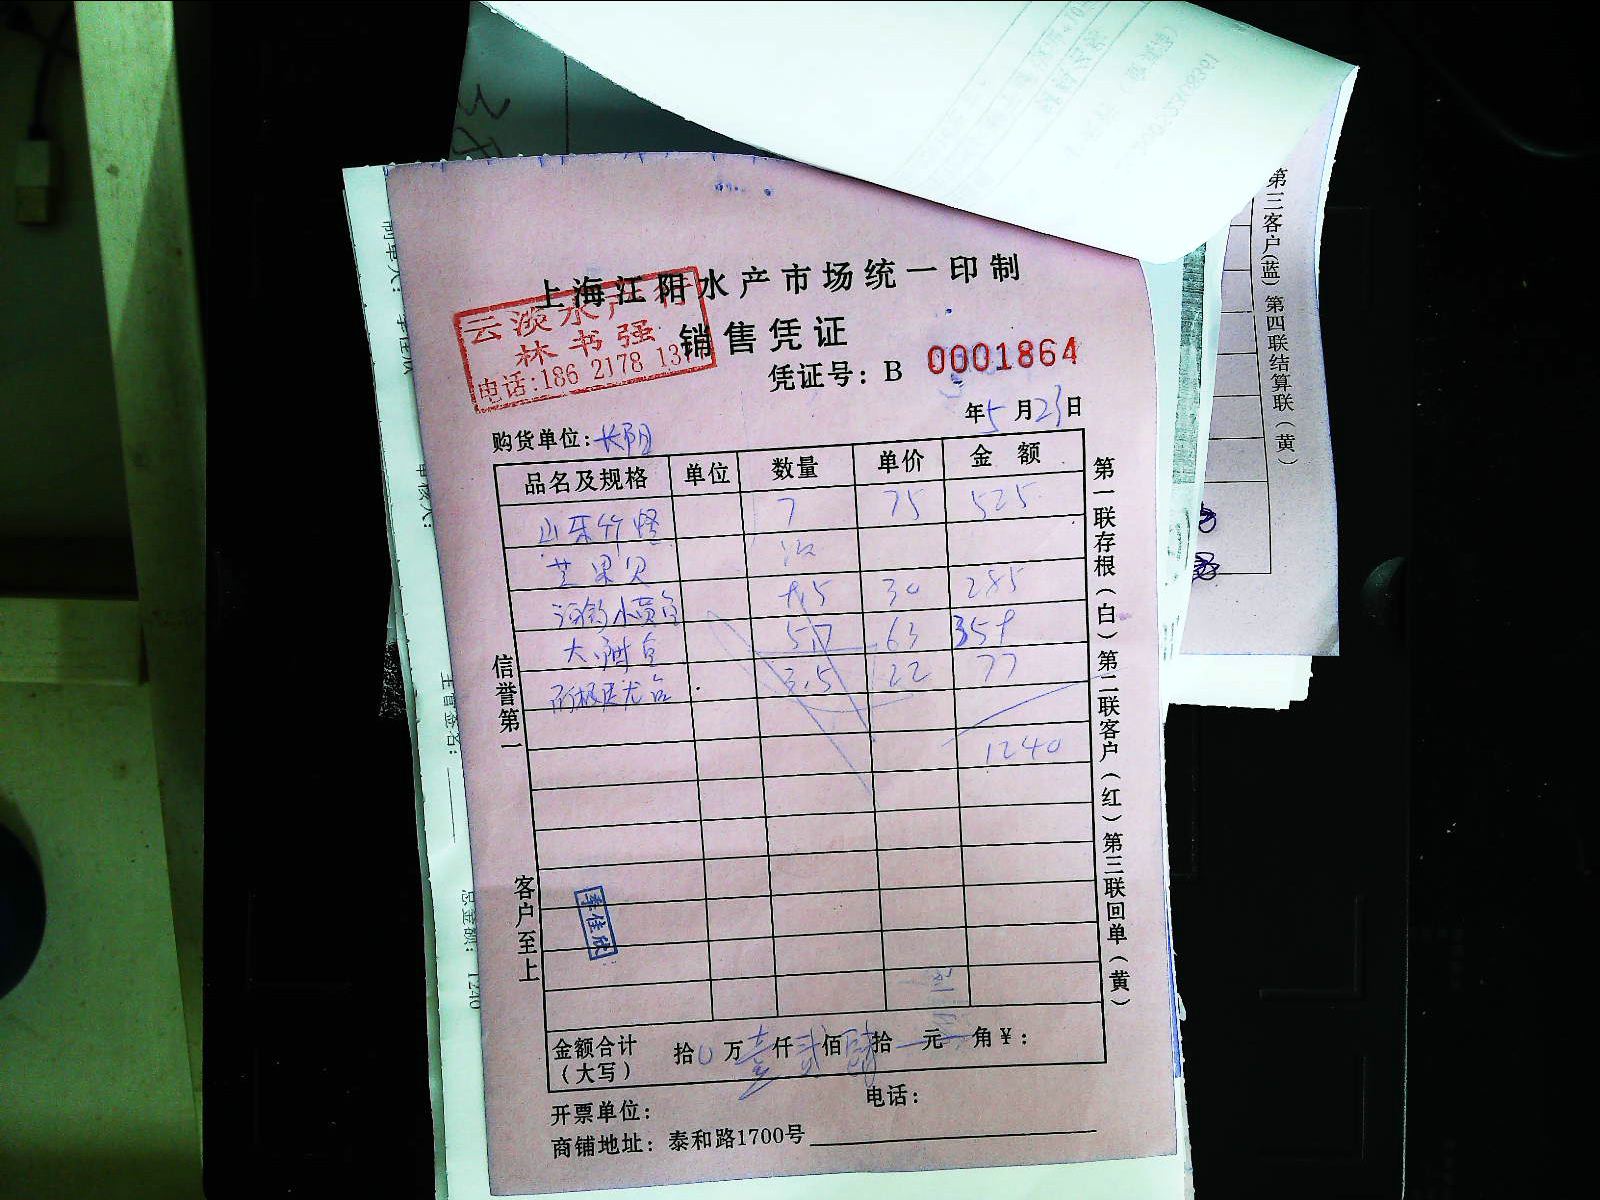 上海江阳水产市场统一印制
云淡水产行
林书强
电话:186 2178 13
销售凭证
凭证号: B 0001864
年5月23日
购货单位:长阳
品名及规格 单位 数量 单价 金额
山东竹蛏 7 75 525
芒果贝
小黄鱼 9.5 30 285
大 5.7 63 359
3.5 22 77
1240
信誉第一
客户至上
季佳欣
第一联存根(白)第二联客户(红)第三联回单(黄)
金额合计(大写) 拾0万壹仟贰佰肆拾 元 角¥:
开票单位: 电话:
商铺地址: 泰和路1700号
第三客户(蓝)第四联结算联(黄)
总金额: 1240